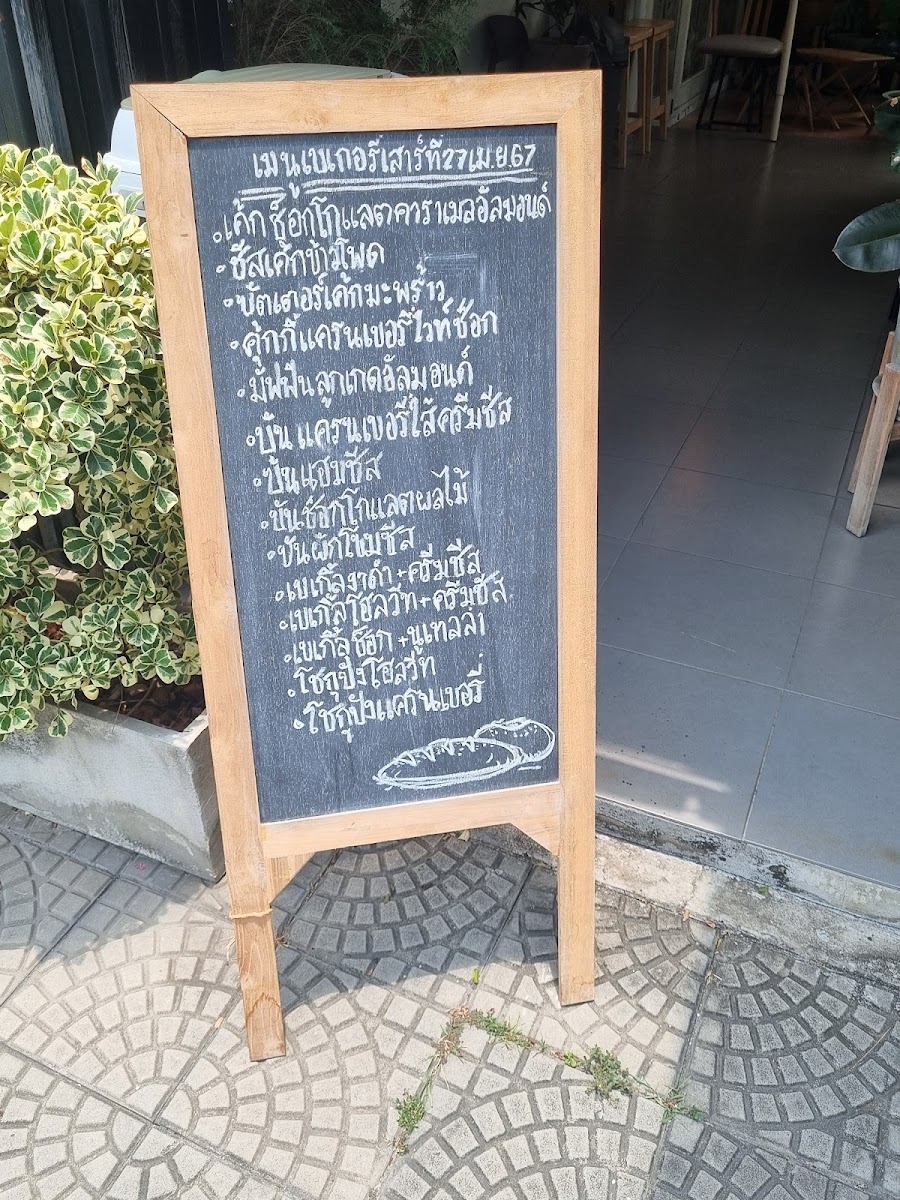 เมนูเบเกอรี่เสาร์ที่27เม.ย.67
เค้กช็อกโกแลตคาราเมลอัลมอนด์
ชีสเค้กข้าวโพด
บัตเตอร์เค้กมะพร้าว
คุ้กกี้แครนเบอรี่ไวท์ช็อก
มัฟฟินลูกเกดอัลมอนด์
บัน แครนเบอรี่ไส้ครีมชีส
บันแฮมชีส
บันช็อกโกแลตผลไม้
บันผักโขมชีส
เบเกิ้ลงาดำ+ครีมชีส
เบเกิ้ลโฮลวีท+ครีมชีส
เบเกิ้ลช็อก+นูเทลล่า
โชกุปังโฮลวีท
โชกุปังแครนเบอรี่